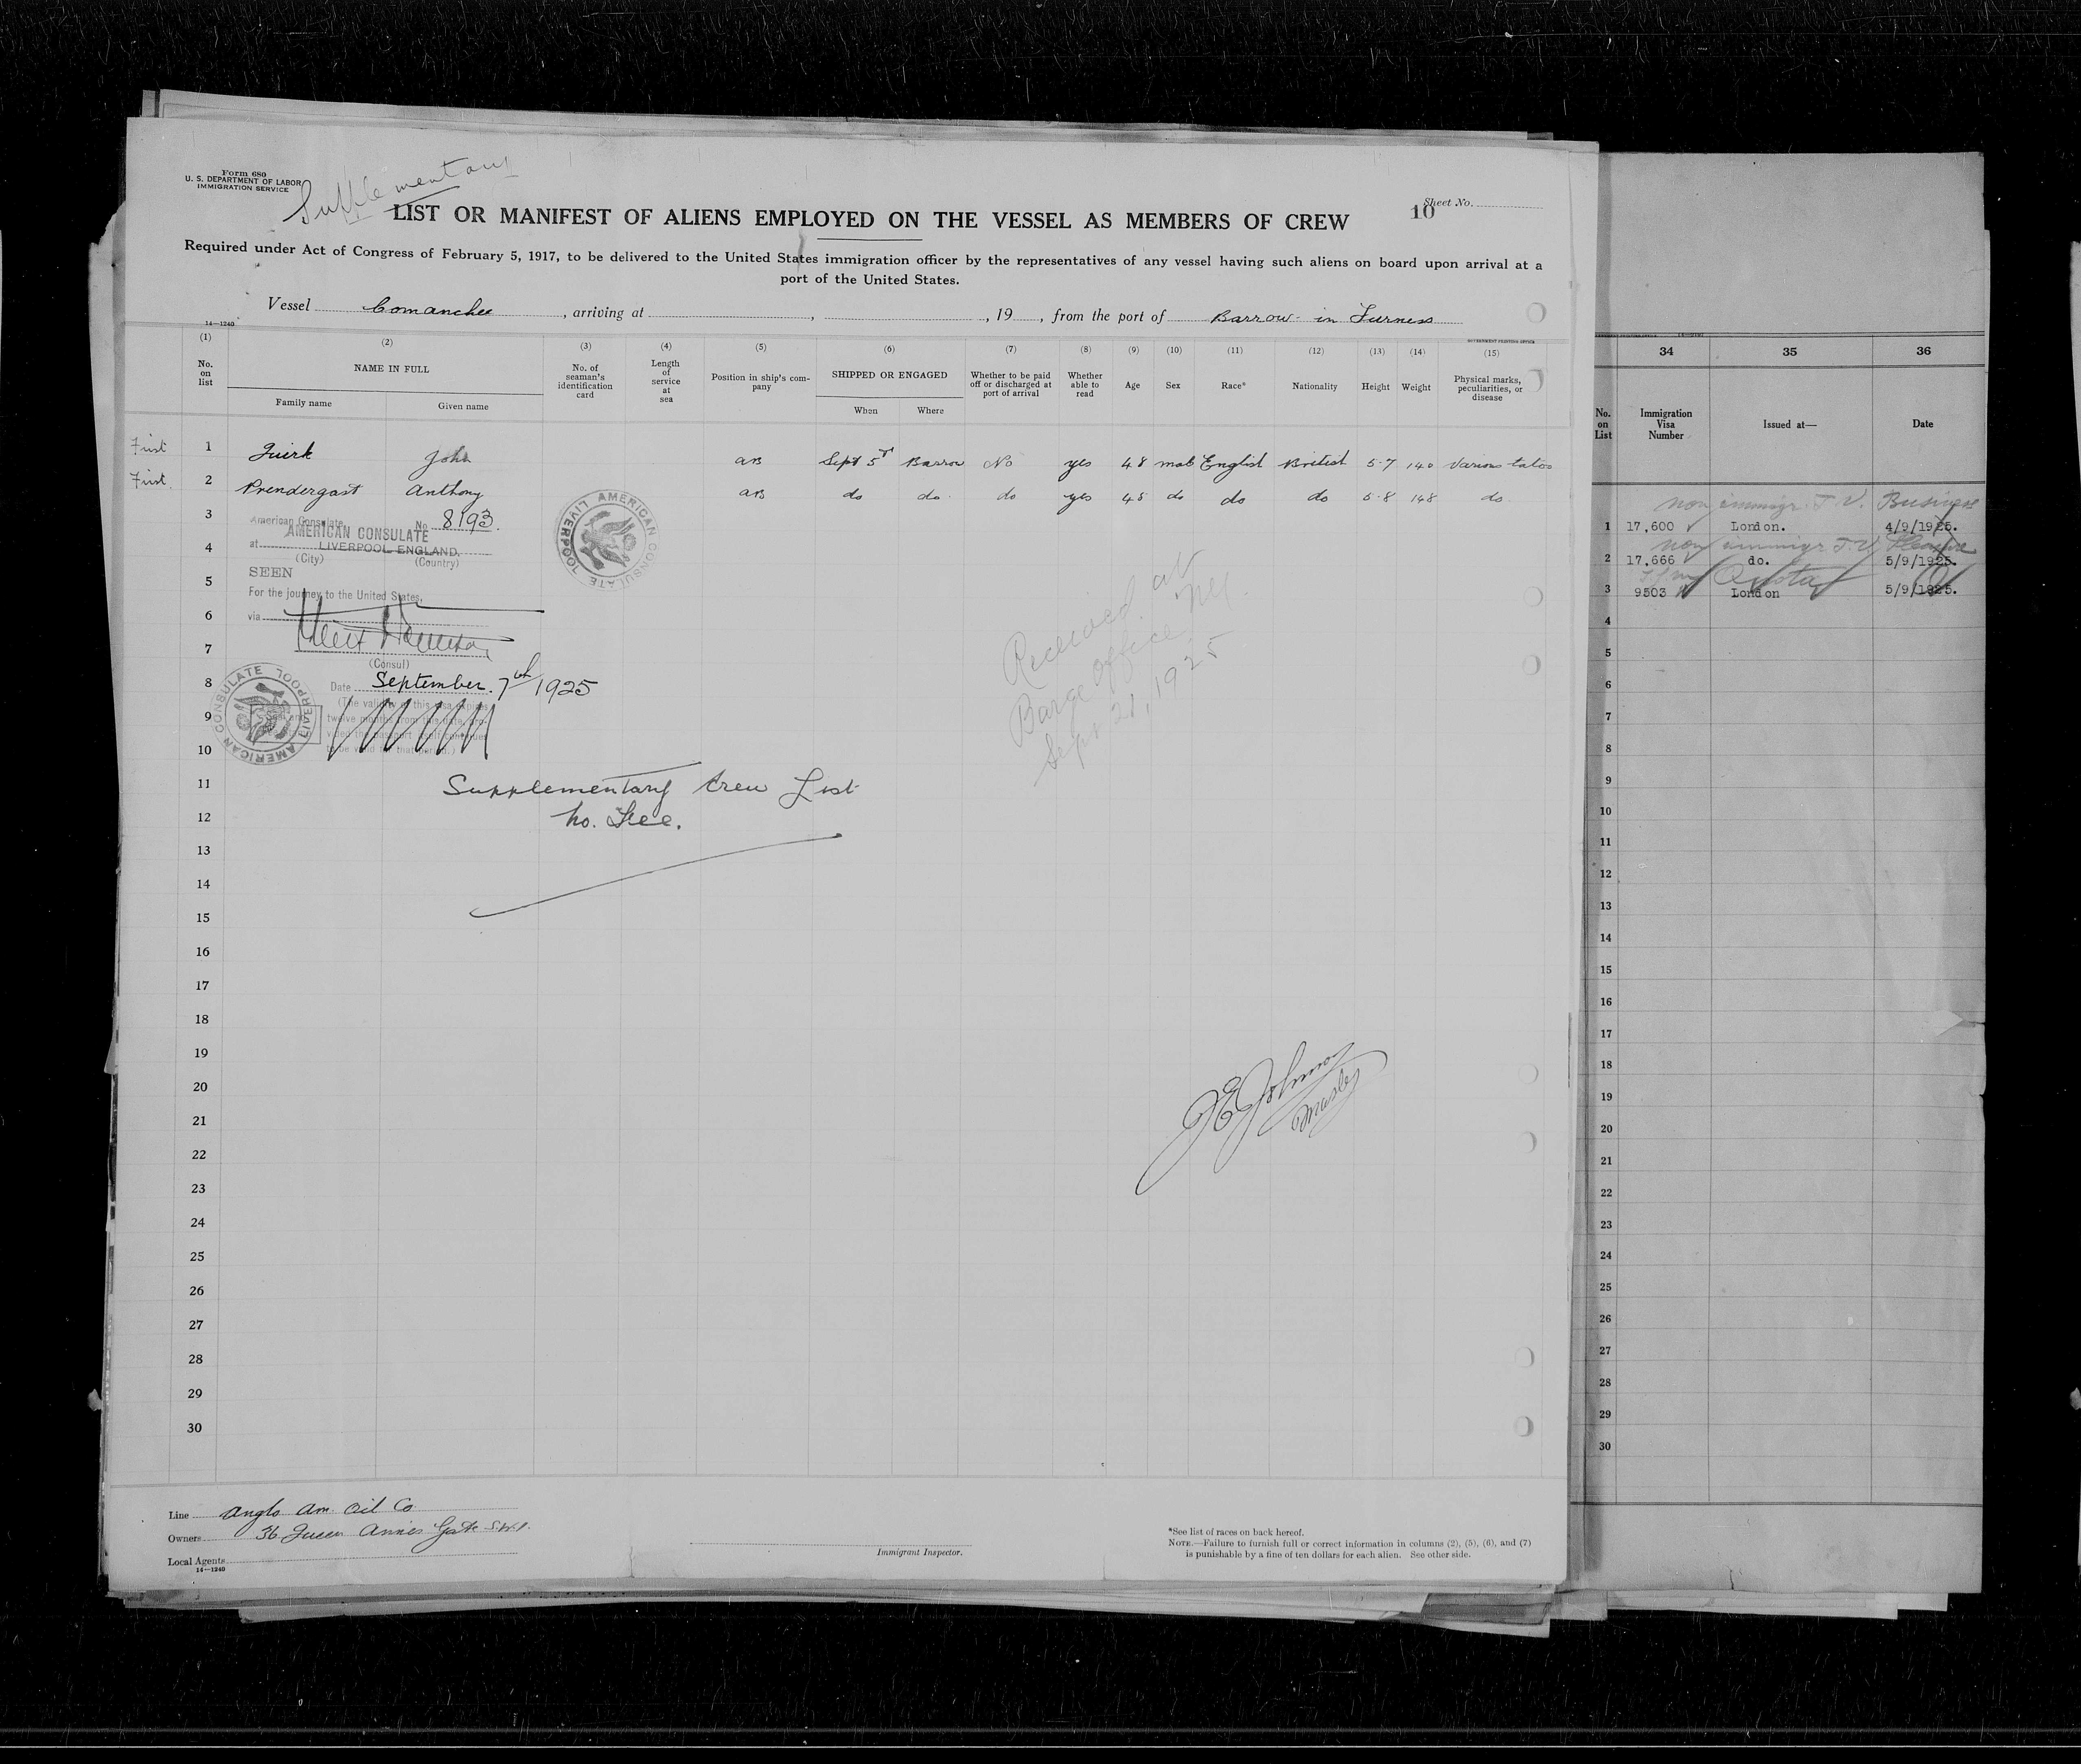 Form 680
U. S. DEPARTMENT OF LABOR
IMMIGRATION SERVICE
Supplementary
Sheet No.
10
LIST OR MANIFEST OF ALIENS EMPLOYED ON THE VESSEL AS MEMBERS OF CREW
Required under Act of Congress of February 5, 1917, to be delivered to the United States immigration officer by the representatives of any vessel having such aliens on board upon arrival at a
port of the United States.
Vessel Comanchee, arriving at , , 19 , from the port of Barrow-in Furness
14—1240
GOVERNMENT PRINTING OFFICE
(1) (2) (3) (4) (5) (6) (7) (8) (9) (10) (11) (12) (13) (14) (15)
No. on list NAME IN FULL Family name Given name No. of seaman's identification card Length of service at sea Position in ship's company SHIPPED OR ENGAGED When Where Whether to be paid off or discharged at port of arrival Whether able to read Age Sex Race* Nationality Height Weight Physical marks, peculiarities, or disease
First 1 Quirk John AB Sept 5 Barrow No yes 48 male English British 5-7 140 Various tatos
First 2 Prendergast Anthony AB do do do yes 45 do do do 5-8 148 do
3
American Consulate No 8193
AMERICAN CONSULATE
4
at LIVERPOOL ENGLAND.
(City) (Country)
AMERICAN CONSULATE LIVERPOOL
SEEN
5
For the journey to the United States,
6
via
7
(Consul)
8
Date September 7th 1925
(The validity of this visa expires
9
twelve months from this date, pro-
vided the passport itself continues
10
to be valid for that period.)
AMERICAN CONSULATE LIVERPOOL
Received at
Barge office
Sept 21, 1925
11
Supplementary Crew List
12
No. Fee.
13
14
15
16
17
18
19
20
21
22
23
24
25
26
27
28
29
30
J E Johnson
Master
Line Anglo Am. Oil Co
Owners 36 Queen Annes Gate S.W.1.
Local Agents
14—1240
Immigrant Inspector.
*See list of races on back hereof.
NOTE.—Failure to furnish full or correct information in columns (2), (5), (6), and (7)
is punishable by a fine of ten dollars for each alien. See other side.
34 35 36
No. on List Immigration Visa Number Issued at— Date
non immigr. T.V. Business
1 17,600 London. 4/9/1925.
non immigr T.V. Pleasure
2 17,666 do. 5/9/1925.
3 9503 London 5/9/1925.
4
5
6
7
8
9
10
11
12
13
14
15
16
17
18
19
20
21
22
23
24
25
26
27
28
29
30